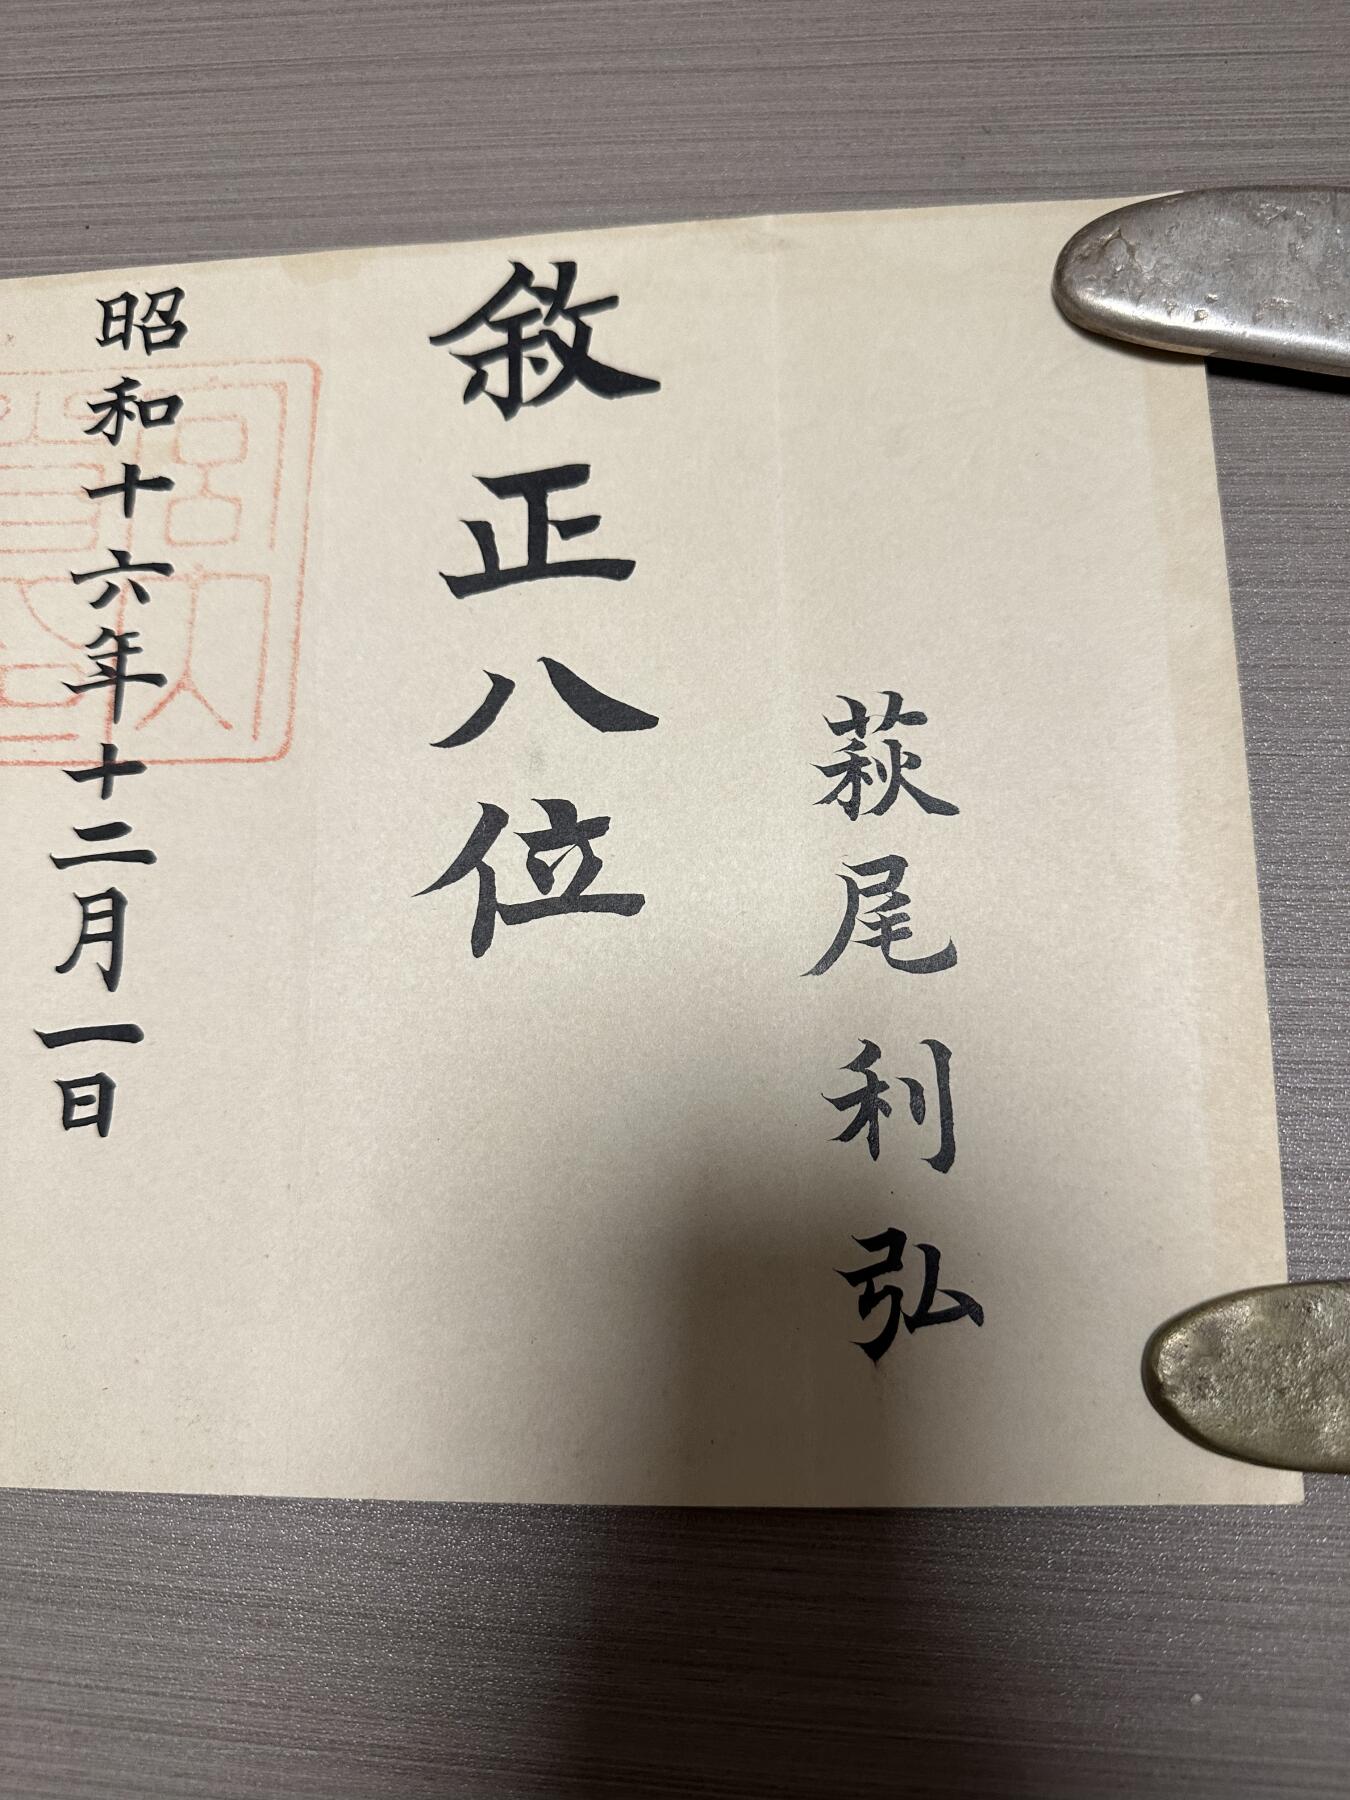 萩尾利弘
敘正八位
昭和十六年十二月一日